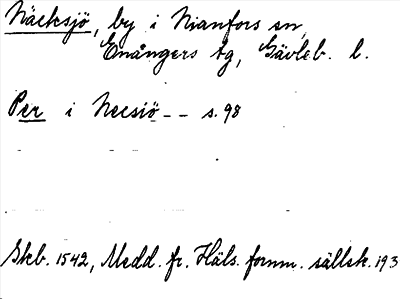 Näcksjö, by i Nianfors sn,
Enångers tg, Gävleb. l.
Per i Necsiö - - s. 98
Skb. 1542, Medd. fr. Häls. fornm. sällsk. 193